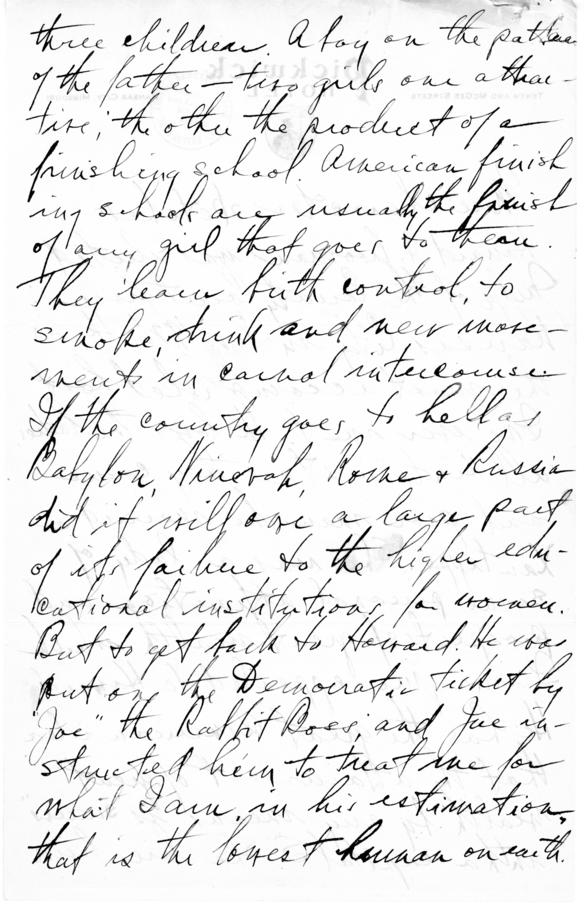 three children. A boy on the pattern
of the father — two girls one attrac-
tive; the other the product of a
finishing school. American finish
ing schools are usually the finish
of any girl that goes to them.
They learn birth control, to
smoke, drink and new move-
ments in carnal intercourse.
If the country goes to hell as
Babylon, Ninevah, Rome & Russia
did it will owe a large part
of its failure to the higher edu-
cational institutions for women.
But to get back to Howard. He was
put on the Democratic ticket by
"Joe" the Rabbit Boss; and Joe in-
structed him to treat me for
what I am, in his estimation,
that is the lowest human on earth.